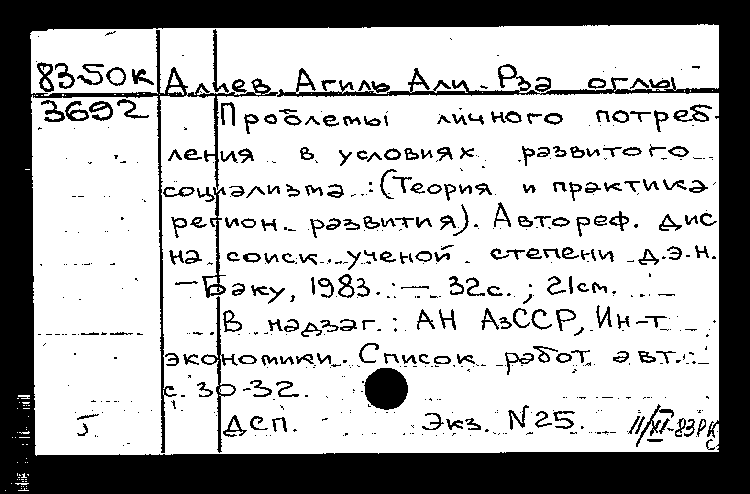 83-50к Алиев, Агиль Али-Рза оглы
3692 Проблемы личного потреб-
ления в условиях развитого
социализма : (Теория и практика
регион. развития). Автореф. дис
на соиск ученой степени д.э.н.
— Баку, 1983. — 32с. ; 21см.
В надзаг. : АН АзССР, Ин-т
экономики. Список работ авт. :
с. 30-32.
ДСП. Экз. N25.
11/XI-83РК